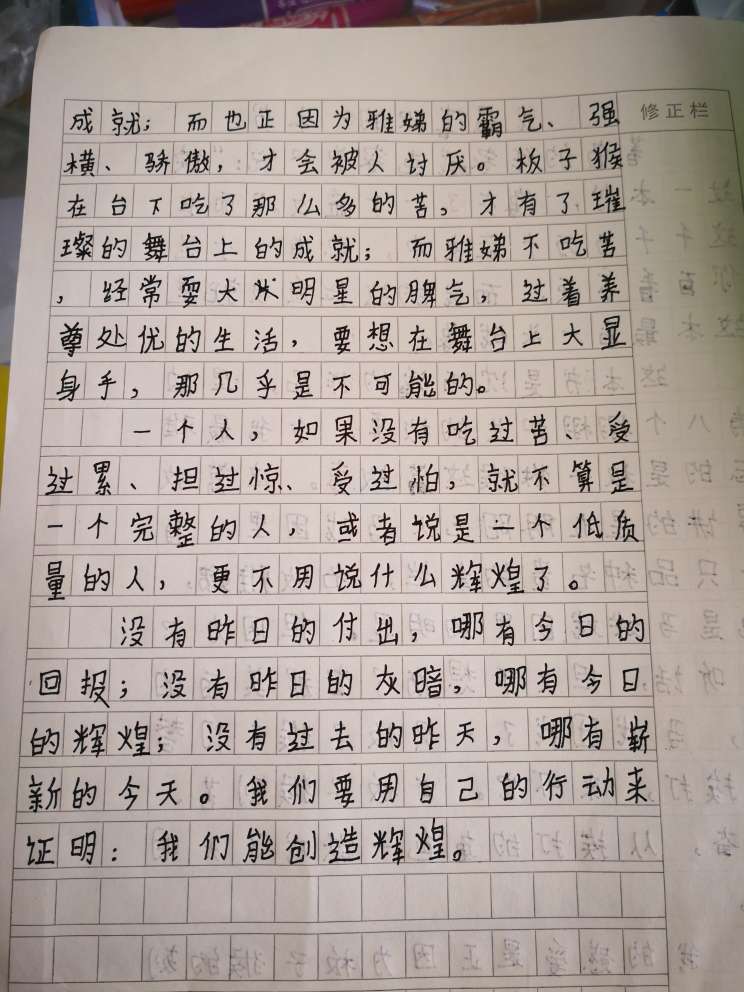 成就；而也正因为雅娣的霸气、强
修正栏
横、骄傲，才会被人讨厌。板子猴
在台下吃了那么多的苦，才有了璀
璨的舞台上的成就；而雅娣不吃苦
，经常耍大牌明星的脾气，过着养
尊处优的生活，要想在舞台上大显
身手，那几乎是不可能的。
一个人，如果没有吃过苦、受
过累、担过惊、受过怕，就不算是
一个完整的人，或者说是一个低质
量的人，更不用说什么辉煌了。
没有昨日的付出，哪有今日的
回报；没有昨日的灰暗，哪有今日
的辉煌；没有过去的昨天，哪有崭
新的今天。我们要用自己的行动来
证明：我们能创造辉煌。